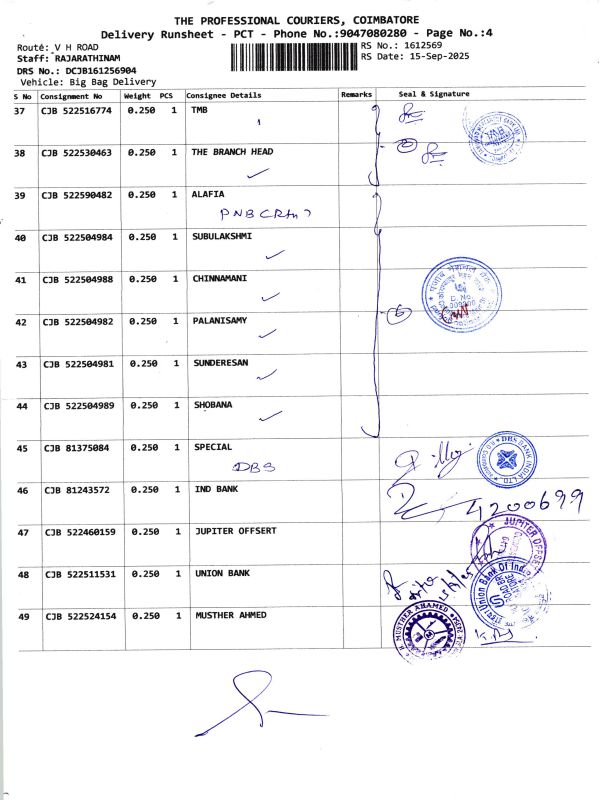 THE PROFESSIONAL COURIERS, COIMBATORE
Delivery Runsheet - PCT - Phone No.:9047080280 - Page No.:4
Route: V H ROAD
RS No.: 1612569
Staff: RAJARATHINAM
RS Date: 15-Sep-2025
DRS No.: DCJB161256904
Vehicle: Big Bag Delivery
S No Consignment No Weight PCS Consignee Details Remarks Seal & Signature
37 CJB 522516774 0.250 1 TMB
38 CJB 522530463 0.250 1 THE BRANCH HEAD
39 CJB 522590482 0.250 1 ALAFIA
PNB
40 CJB 522504984 0.250 1 SUBULAKSHMI
41 CJB 522504988 0.250 1 CHINNAMANI
42 CJB 522504982 0.250 1 PALANISAMY
43 CJB 522504981 0.250 1 SUNDERESAN
44 CJB 522504989 0.250 1 SHOBANA
45 CJB 81375084 0.250 1 SPECIAL
DBS
DBS BANK INDIA LTD.
46 CJB 81243572 0.250 1 IND BANK
4200699
47 CJB 522460159 0.250 1 JUPITER OFFSERT
JUPITER OFFSE
48 CJB 522511531 0.250 1 UNION BANK
Union Bank Of India
49 CJB 522524154 0.250 1 MUSTHER AHMED
MUSTHER AHAMED